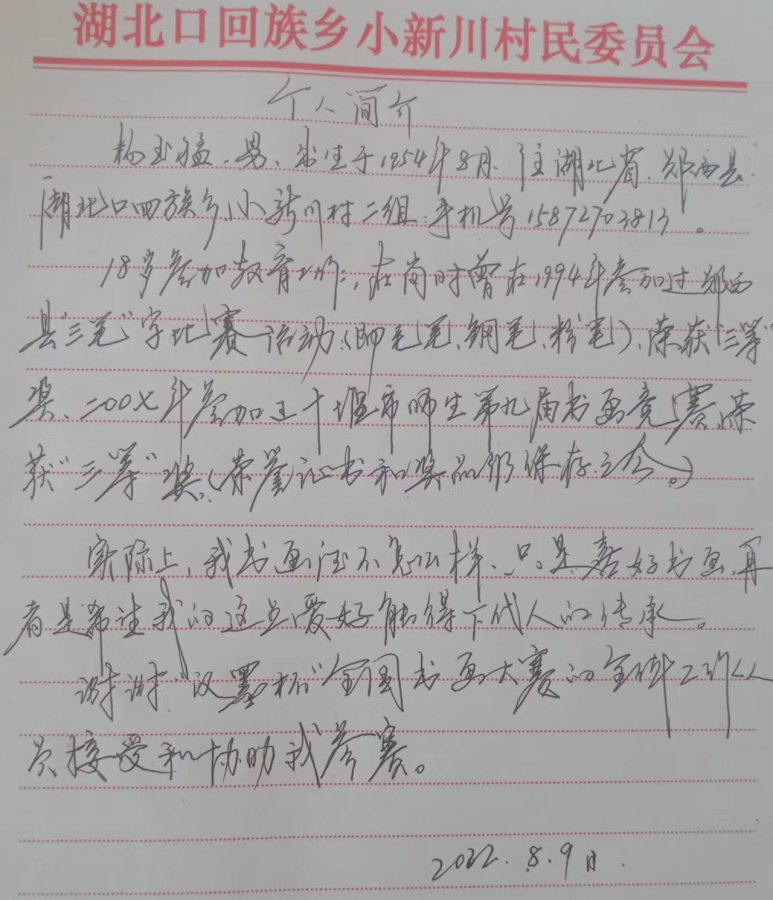 湖北口回族乡小新川村民委员会
个人简介
杨玉猛，男，出生于1954年8月，住湖北省，郧西县，
湖北口回族乡，小新川村二组，手机号15872703813。
18岁参加教育工作，在岗时曾在1994年参加过郧西
县“三笔”字比赛活动（即毛笔、钢笔、粉笔），荣获“三等”
奖、二00七年参加过十堰市师生第九届书画竞赛，荣
获“三等”奖。（荣誉证书和奖品仍保存至今。）
实际上，我书画法不怎么样，只是喜好书画，再
者是希望我的这点爱好能得下代人的传承。
谢谢“汉墨杯”全国书画大赛的全体工作人
员接受和协助我参赛。
2022.8.9日.